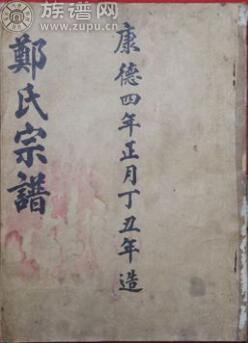 族谱网
www.zupu.cn
康德四年正月丁丑年造
鄭氏宗譜